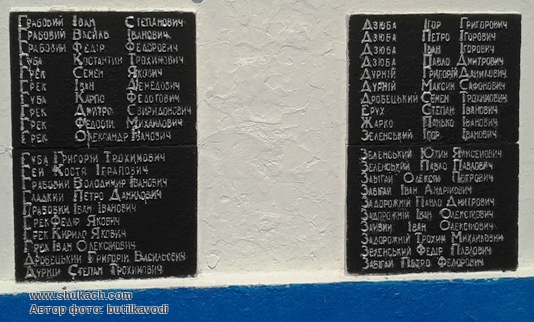 Грабовий Іван Степанович
Грабовий Василь Іванович
Грабовий Федір Федорович
Губа Костянтин Трохимович
Грек Семен Якович
Грек Іван
Губа Карпо Федотович
Грек Дмитро Свиридонович
Грек Федосій Михайлович
Грек Олександр
Губа Григорій Трохимович
Гей Костя
Грабовий Володимир Іванович
Гладкий Петро Данилович
Грабовий Іван Іванович
Грек Федір Якович
Грек Кирило Якович
Грек Іван Олексійович
Дробецький Григорій Васильович
Дурній Степан Трохимович
Дзюба Ігор Григорович
Дзюба Петро Ігорович
Дзюба Іван Ігорович
Дзюба Павло Дмитрович
Дурній Григорій Данилович
Дурній Максим Сафонович
Дробецький Семен Трохимович
Єрух Степан Іванович
Жарко Панько Іванович
Зеленський Ігор Іванович
Зеленський Юлин
Зеленський Павло Павлович
Забіган Олексій Петрович
Забіган Іван Андрійович
Задорожній Павло Дмитрович
Задорожній Іван Олексійович
Іван Олексійович
Задорожній Трохим Михайлович
Зеленський Федір Павлович
Забіган Петро Федорович
www.shukach.com
Автор фото: butilkavodi